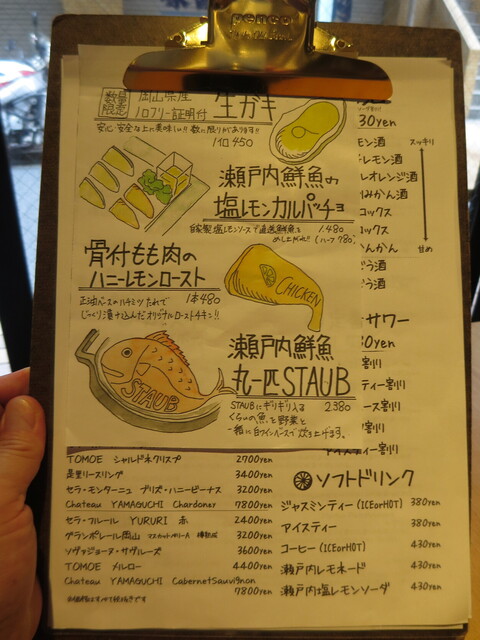 penco
数量限定
岡山県産
ノロフリー証明付 生ガキ
安心安全な上に美味しい!! 数に限りがあります!!
1コ 450
瀬戸内鮮魚の
塩レモンカルパッチョ
自家製塩レモンソースで直送鮮魚を 1.480
めし上がれ!! (ハーフ780)
骨付もも肉の
ハニーレモンロースト
正油ベースのハチミツたれで 1本480
じっくり漬け込んだオリジナルローストチキン!!
CHICKEN
瀬戸内鮮魚
丸一匹STAUB
STAUB
STAUBにギリギリ入る 2380
くらいの魚と野菜と
一緒に白ワインベースで炊き上げます。
30yen
モン酒
スッキリ
レモン酒
レオレンジ酒
みかん酒
コックス
コックス
かんかん
甘め
う酒
う酒
サワー
30yen
割り
ティー割り
ース割り
割り
イスティー割り
TOMOE シャルドネクリスプ 2700yen
是里リースリング 3400yen
セラ・モンターニュ プリズ・ハニービーナス 3200yen
Chateau YAMAGUCHI Chardonay 7800yen
セラ・フルール YURURI 赤 2400yen
グランポレール岡山 マスカットベリーA 樽熟成 3200yen
ソヴァジョーヌ・サヴルーズ 3600yen
TOMOE メルロー 4400yen
Chateau YAMAGUCHI CabernetSauvignon
7800yen
※価格はすべて税抜きです
ソフトドリンク
ジャスミンティー (ICEorHOT) 380yen
アイスティー 380yen
コーヒー (ICEorHOT) 430yen
瀬戸内レモネード 430yen
瀬戸内塩レモンソーダ 430yen